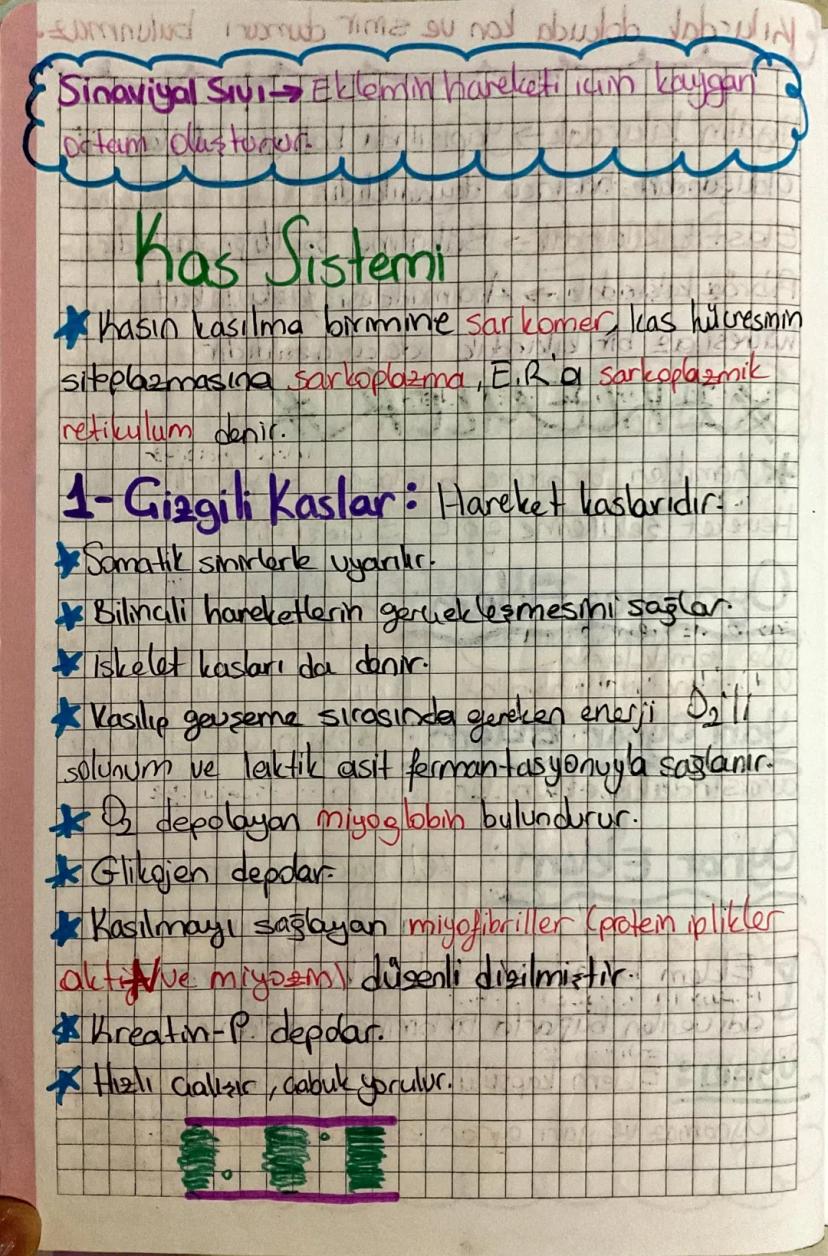 Sinaviyal Sıvı → Eklemin hareketi için kaygan
ortam oluşturur.
Kas Sistemi
★ Kasın kasılma birimine sarkomer, kas hücresinin
sitoplazmasına sarkoplazma, E.R'a sarkoplazmik
retikulum denir.
1- Çizgili Kaslar: Hareket kaslarıdır.
★ Somatik sinirlerle uyarılır.
★ Bilinçli hareketlerin gerçekleşmesini sağlar.
★ iskelet kasları da denir.
★ Kasılıp gevşeme sırasında gereken enerji O₂'li
solunum ve laktik asit fermantasyonuyla sağlanır.
★ O₂ depolayan miyoglobin bulundurur.
★ Glikojen depolar.
★ Kasılmayı sağlayan miyofibriller (protein iplikler
aktin ve miyozin) düzenli dizilmiştir.
★ Kreatin-P. depolar.
★ Hızlı çalışır, çabuk yorulur.